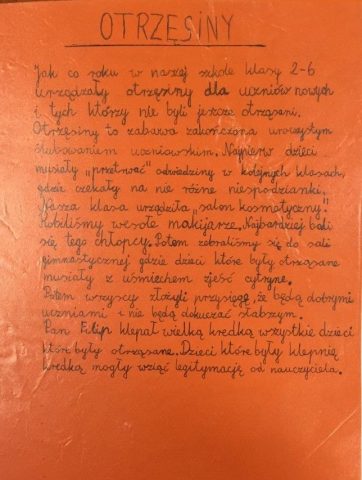 OTRZĘSINY
Jak co roku w naszej szkole klasy 2-6
urządzały otrzęsiny dla uczniów nowych
i tych którzy nie byli jeszcze otrząsani.
Otrzęsiny to zabawa zakończona uroczystym
ślubowaniem uczniowskim. Najpierw dzieci
musiały "przetrwać" odwiedziny w kolejnych klasach,
gdzie czekały na nie różne niespodzianki.
Nasza klasa urządziła "salon kosmetyczny".
Robiliśmy wesołe makijaże. Najbardziej bali
się tego chłopcy. Potem zebraliśmy się do sali
gimnastycznej gdzie dzieci które były otrząsane
musiały z uśmiechem zjeść cytrynę.
Potem wszyscy złożyli przysięgę, że będą dobrymi
uczniami i nie będą dokuczać słabszym.
Pan Filip klepał wielką kredką wszystkie dzieci
które były otrząsane. Dzieci które były klepnię
kredką mogły wziąć legitymację od nauczyciela.